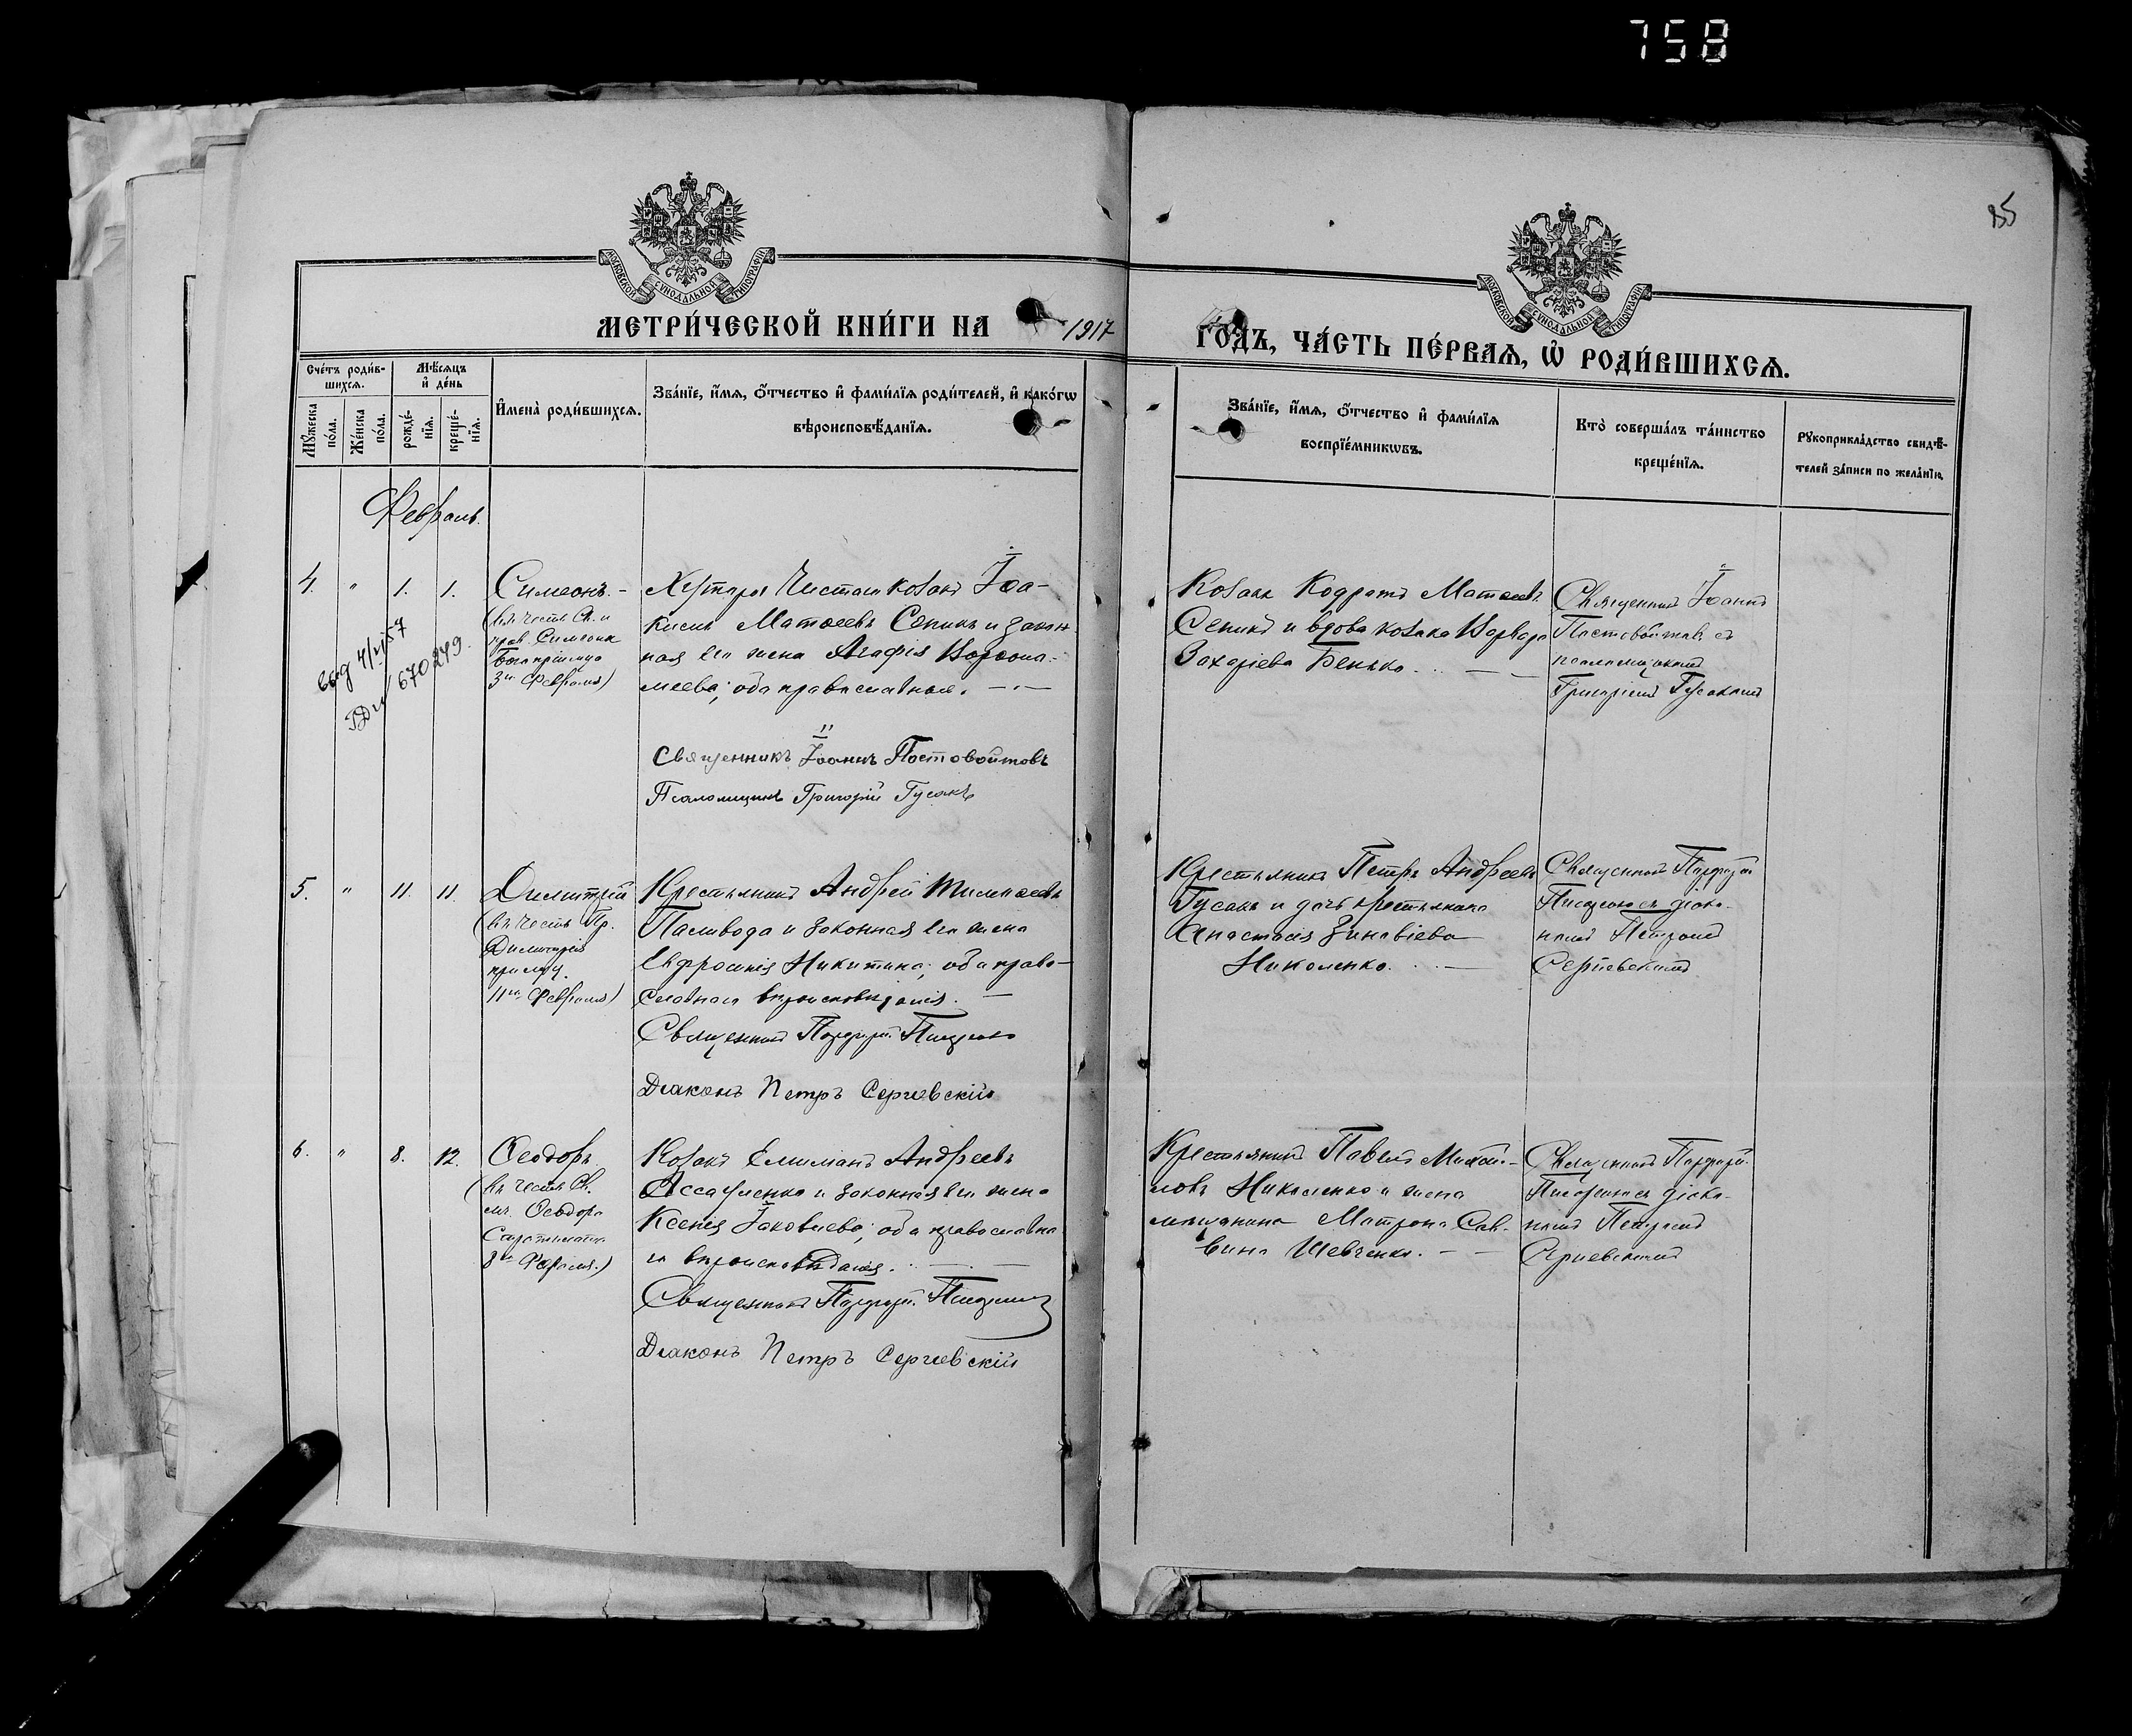 758
85
МОСКОВСКОЙ СѴНОДАЛЬНОЙ ТИПОГРАФІИ
МОСКОВСКОЙ СѴНОДАЛЬНОЙ ТИПОГРАФІИ
МЕТРИ́ЧЕСКОЙ КНИ́ГИ НА 1917
ГО́ДЪ, ЧА́СТЬ ПЕ́РВАѦ, Ѡ҆ РОДИ́ВШИХСѦ.
Сче́тъ роди́в-
шихсѧ.
Мꙋ́жеска по́ла.
Же́нска по́ла.
Мѣ́сѧцъ и҆ де́нь
рожде́-
нїѧ.
креще́-
нїѧ.
И҆мена̀ роди́вшихсѧ.
Зва́нїе, и҆́мѧ, ѻ҆́тчество и҆ фами́лїѧ роди́телей, и҆ како́гѡ
вѣроисповѣ́данїѧ.
Зва́нїе, и҆́мѧ, ѻ҆́тчество и҆ фами́лїѧ
воспрїе́мникѡвъ.
Кто̀ соверша́лъ та́инство
креще́нїѧ.
Рꙋкоприкла́дство свидѣ́-
телей за́писи по жела́нїю.
Февраль.
4. " 1. 1.
Симеонъ. -
(въ честь Св. и
прав. Симеона
Богопріимца
3го Февраля)
670249.
козакъ Іоа-
кимъ Матѳеевъ Сепикъ и закон
ная его жена Агафія Варѳоло-
меева; оба православные.
Священникъ Іоаннъ Постовойтовъ
Псаломщикъ Григорій Гусакъ
Козакъ Кодратъ Матѳеевъ
Сепикъ и вдова козака Варвара
Захаріева Бенько.
Священникъ Іоаннъ
Постовойтовъ съ
псаломщикомъ
Григоріемъ Гусакомъ
5. " 11. 11.
Димитрій
(въ честь Пр.
Димитрія
прилуц.
11го Февраля)
Крестьянинъ Андрей
Паливода и законная его жена
Евфросинія Никитина; оба право-
славнаго вѣроисповѣданія.
Священникъ Порфирій
Діаконъ Петръ Сергіевскій
Крестьянинъ Петръ Андреевъ
Гусакъ и дочь крестьянина
Анастасія Зиновіева
Николенко.
Священникъ Порфирій
діако-
номъ Петромъ
Сергіевскимъ
6. " 8. 12.
Ѳеодоръ
(въ честь Св.
мч. Ѳеодора
Стратилата
8го Февраля.)
Козакъ Андреевъ
Ассауленко и законная его жена
Ксенія Іаковлева; оба православна
го вѣроисповѣданія.
Священникъ Порфирій
Діаконъ Петръ Сергіевскій
Крестьянинъ Павелъ Михаи-
ловъ Николенко и жена
мѣщанина Матрона Сав-
вина Шевченко.
Священникъ Порфирій
діако-
номъ Петромъ
Сергіевскимъ